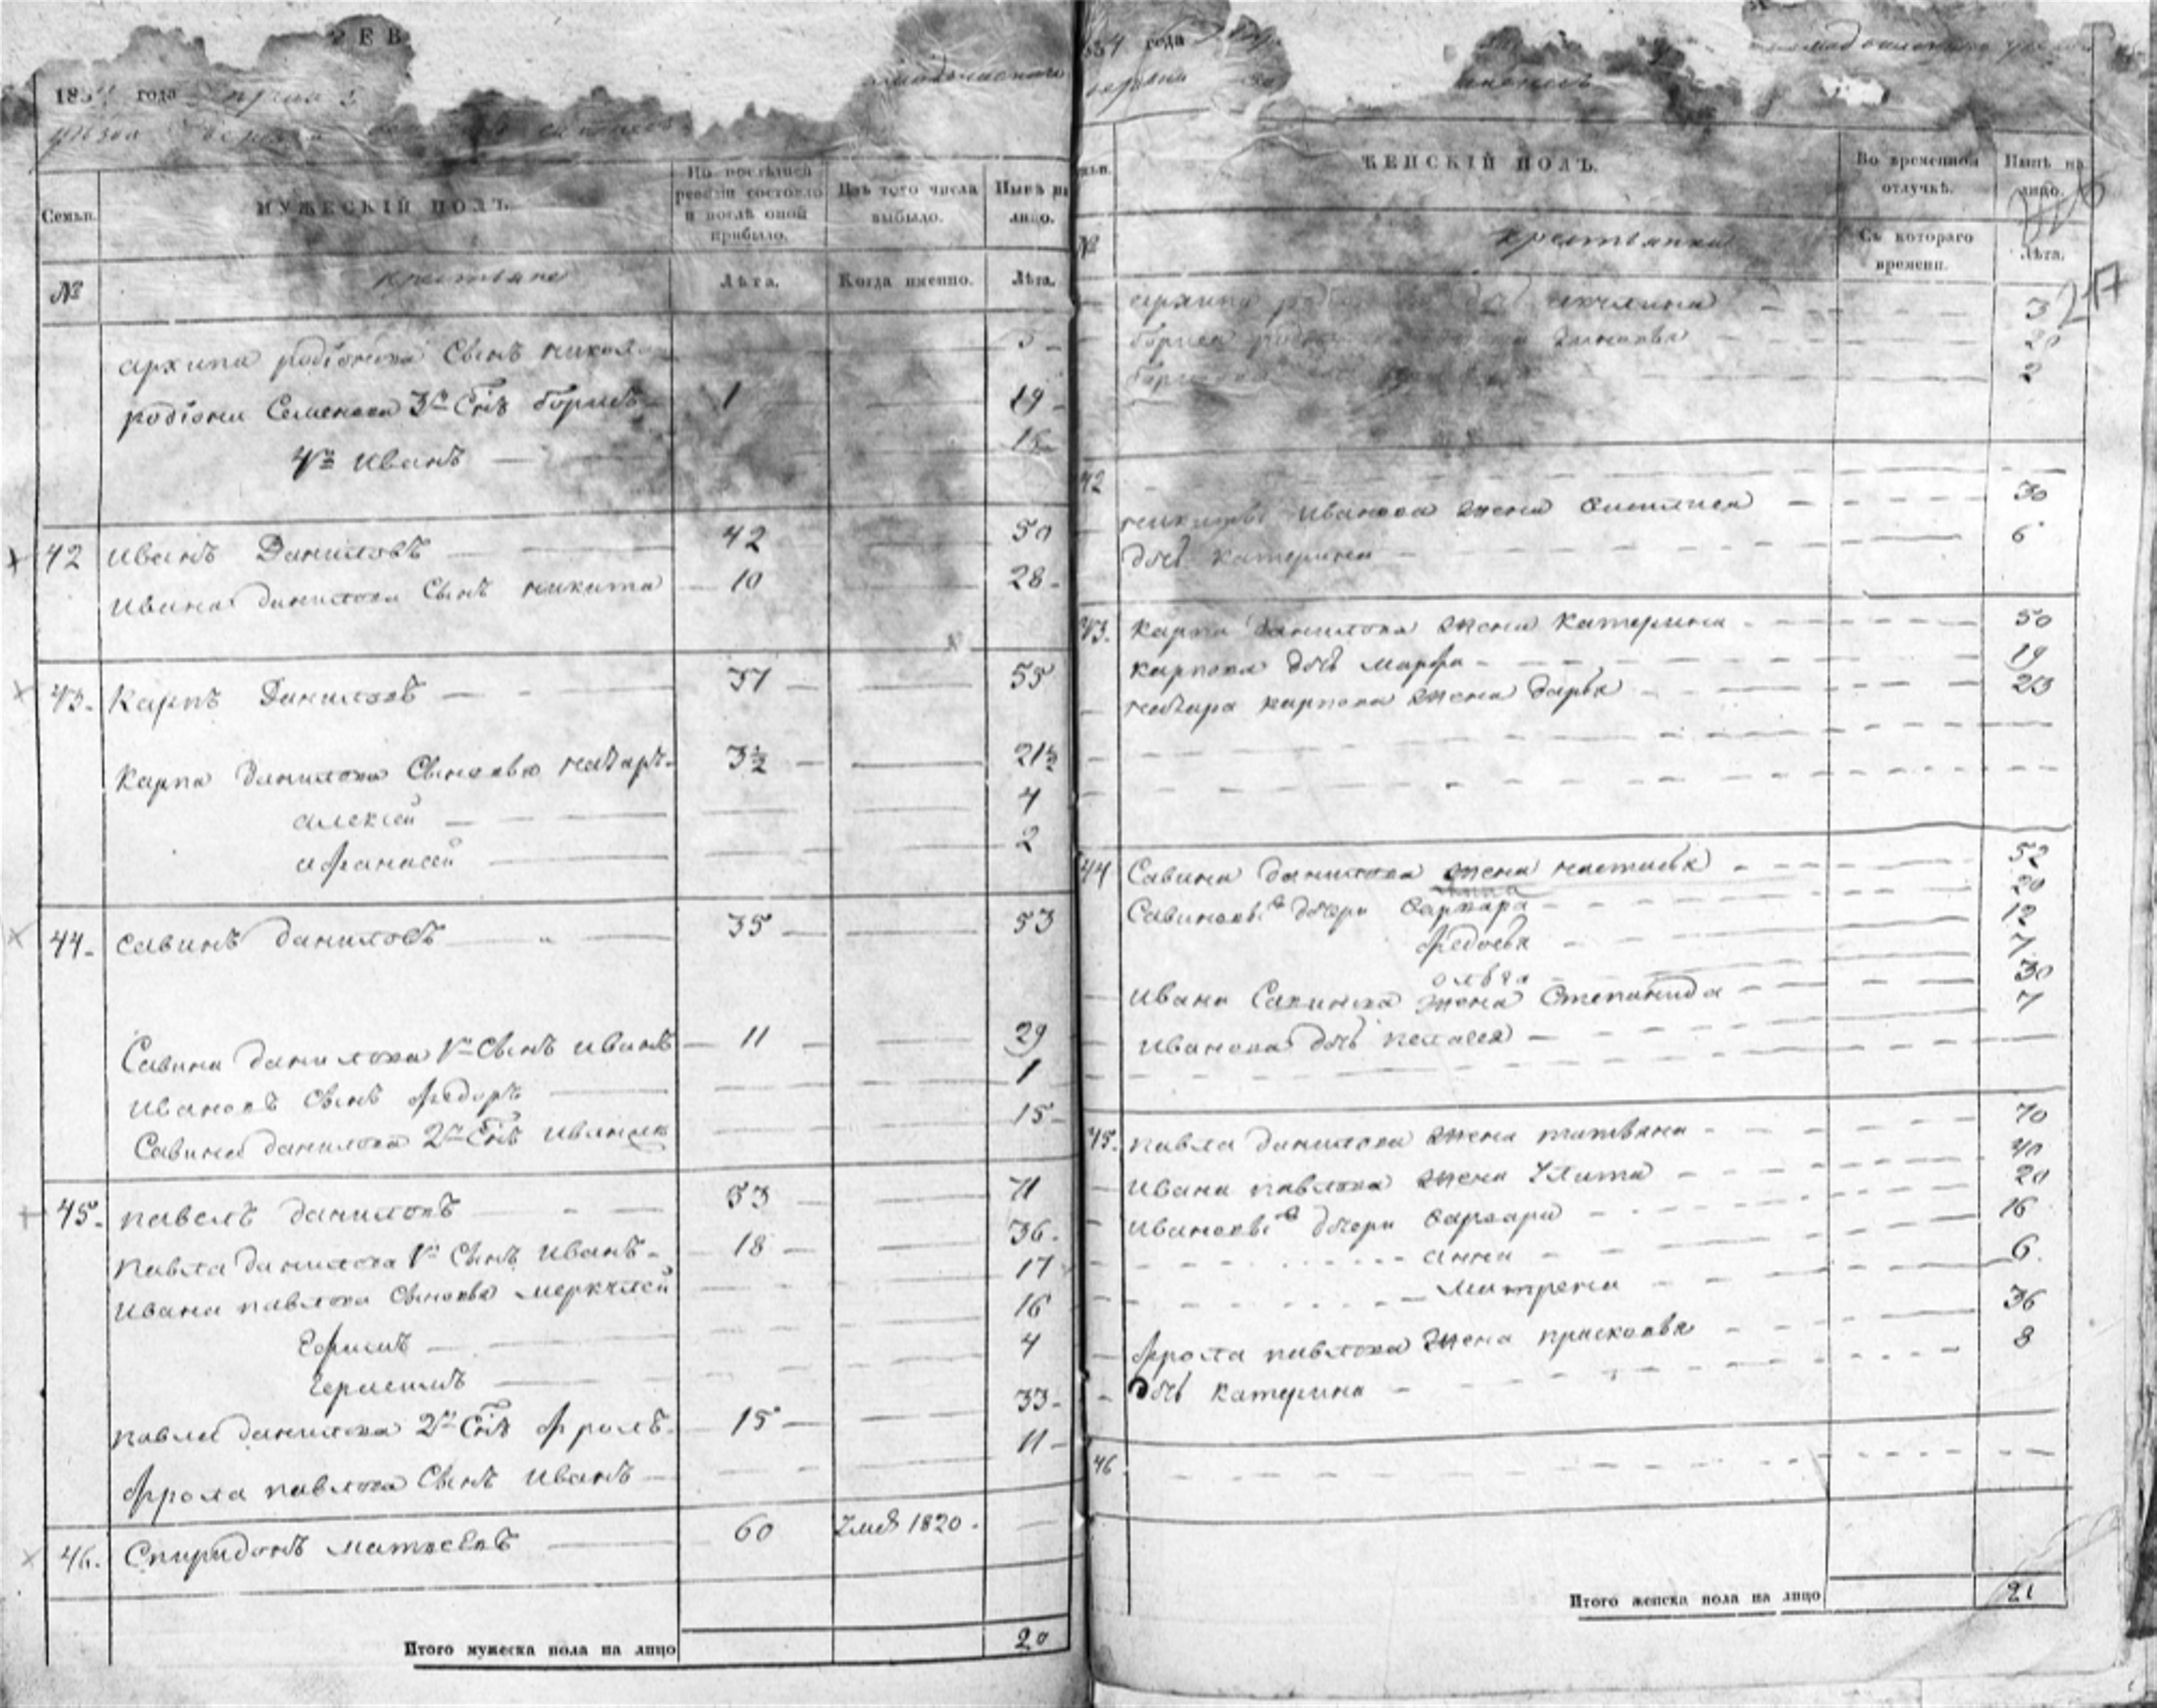 РЕВ
183 года
уѣзда
Семьи.
МУЖЕСКІЙ ПОЛЪ.
По послѣдней ревизіи состояло и послѣ оной прибыло.
Изъ того числа выбыло.
Нынѣ на лицо.
№
крестьяне
Лѣта.
Когда именно.
Лѣта.
архипа родіонова Сынъ никол
родіона Семенова 3й Снъ борисъ 1 19
4й иванъ
42 иванъ Даниловъ 42 50
ивана данилова Сынъ никита 10 28
43. Карпъ Даниловъ 37 55
Карпа данилова Сыновья назаръ 3½ 21½
алексей 4
афанасей 2
44. савинъ даниловъ 35 53
Савина данилова 1й Сынъ иванъ 11 29
ивановъ Сынъ федоръ 1
Савина данилова 2й Снъ 15
45. павелъ даниловъ 53 71
павла данилова 1й Сынъ иванъ 18 36
ивана павлова Сыновья меркулей 17
Ефимъ 16
Герасимъ 4
павла данилова 2й Снъ фролъ 15 33
фрола павлова Сынъ иванъ 11
46. Спиридонъ матвеевъ 60 Умеръ 1820.
Итого мужеска пола на лицо 20
34 года
ЖЕНСКІЙ ПОЛЪ.
Во временной отлучкѣ.
Нынѣ на лицо.
№
крестьянки
Съ котораго времени.
Лѣта.
217
архипа дочь акулина 3
2
42
никиты иванова жена василиса 30
дочь катерина 6
43. карпа данилова жена катерина 50
карпова дочь марфа 19
назара карпова жена дарья 23
44 Савина данилова жена настасья 52
Савиновы дочери варвара 20
федосья 12
ольга 7
ивана Савинова жена Степанида 30
иванова дочь пелагея 7
45. павла данилова жена татьяна 70
ивана павлова жена Улита 40
ивановы дочери варвара 20
анна 16
матрена 6.
фрола павлова жена прасковья 36
дочь катерина 8
46
Итого женска пола на лицо 21